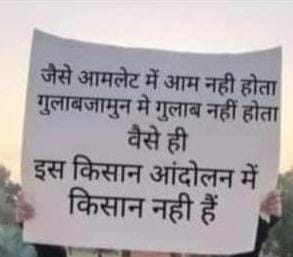 जैसे आमलेट में आम नही होता
गुलाबजामुन मे गुलाब नहीं होता
वैसे ही
इस किसान आंदोलन में
किसान नही हैं